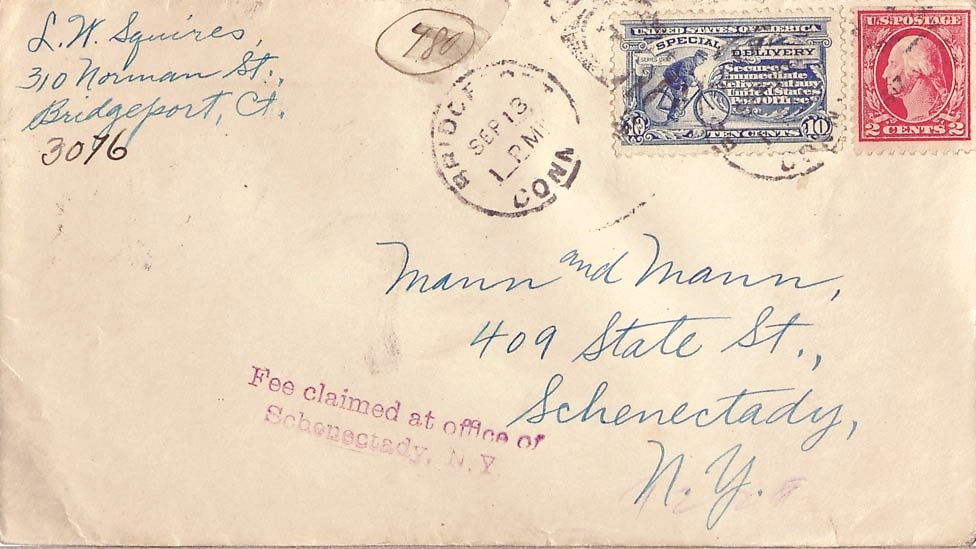 L. W. Squires,
310 Norman St.,
Bridgeport, Ct.
3076
486
BRIDGE
SEP 13
1 PM
CONN
UNITED STATES OF AMERICA
SPECIAL DELIVERY
SERIES 1902
Secures
immediate
delivery at any
United States
Post Office
TEN CENTS 10
CONN.
U.S. POSTAGE
2 CENTS 2
Mann and Mann,
409 State St.,
Schenectady,
N. Y.
Fee claimed at office of
Schenectady, N. Y.